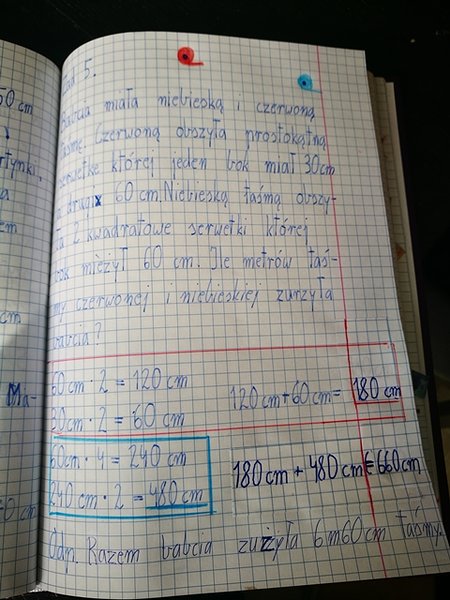 50 cm
Zad 5.
Babcia miała niebieską i czerwoną
taśmę. Czerwoną obszyła prostokątną
serwetkę której jeden bok miał 30cm
a drugi 60 cm. Niebieską taśmą obszy-
ła 2 kwadratowe serwetki której
bok mieżył 60 cm. Ile metrów taś-
my czerwonej i niebieskiej zurzyła
babcia?
cm
Ma-
60 cm · 2 = 120 cm
30cm · 2 = 60 cm
120 cm + 60 cm = 180 cm
60cm · 4 = 240 cm
240 cm · 2 = 480 cm
180 cm + 480 cm = 660 cm
Odp. Razem babcia zużyła 6 m 60 cm taśmy.